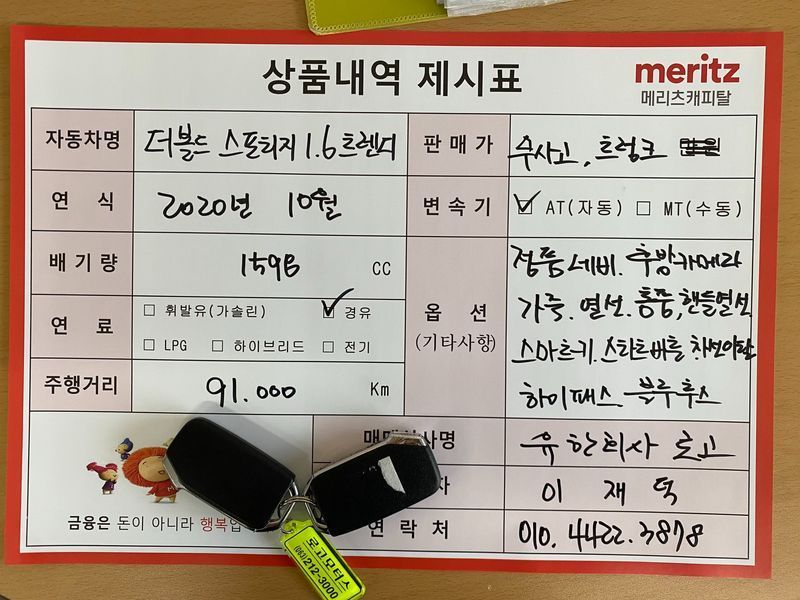 상품내역 제시표
meritz
메리츠캐피탈
자동차명 더볼드 스포티지 1.6 트렌디
판매가 무사고, 트렁크
연식 2020년 10월
변속기 ☑ AT(자동) □ MT(수동)
배기량 1598 CC
연료 □ 휘발유(가솔린) ☑ 경유
□ LPG □ 하이브리드 □ 전기
주행거리 91.000 Km
옵션
(기타사항)
정품네비. 후방카메라
가죽. 열선. 통풍, 핸들열선
스마트키. 스타트버튼 차선이탈
하이패스. 블루투스
매매 사명 유한회사 로고
자 이재덕
연락처 010. 4422. 3878
금융은 돈이 아니라 행복입
로고모터스
(063)212-3000